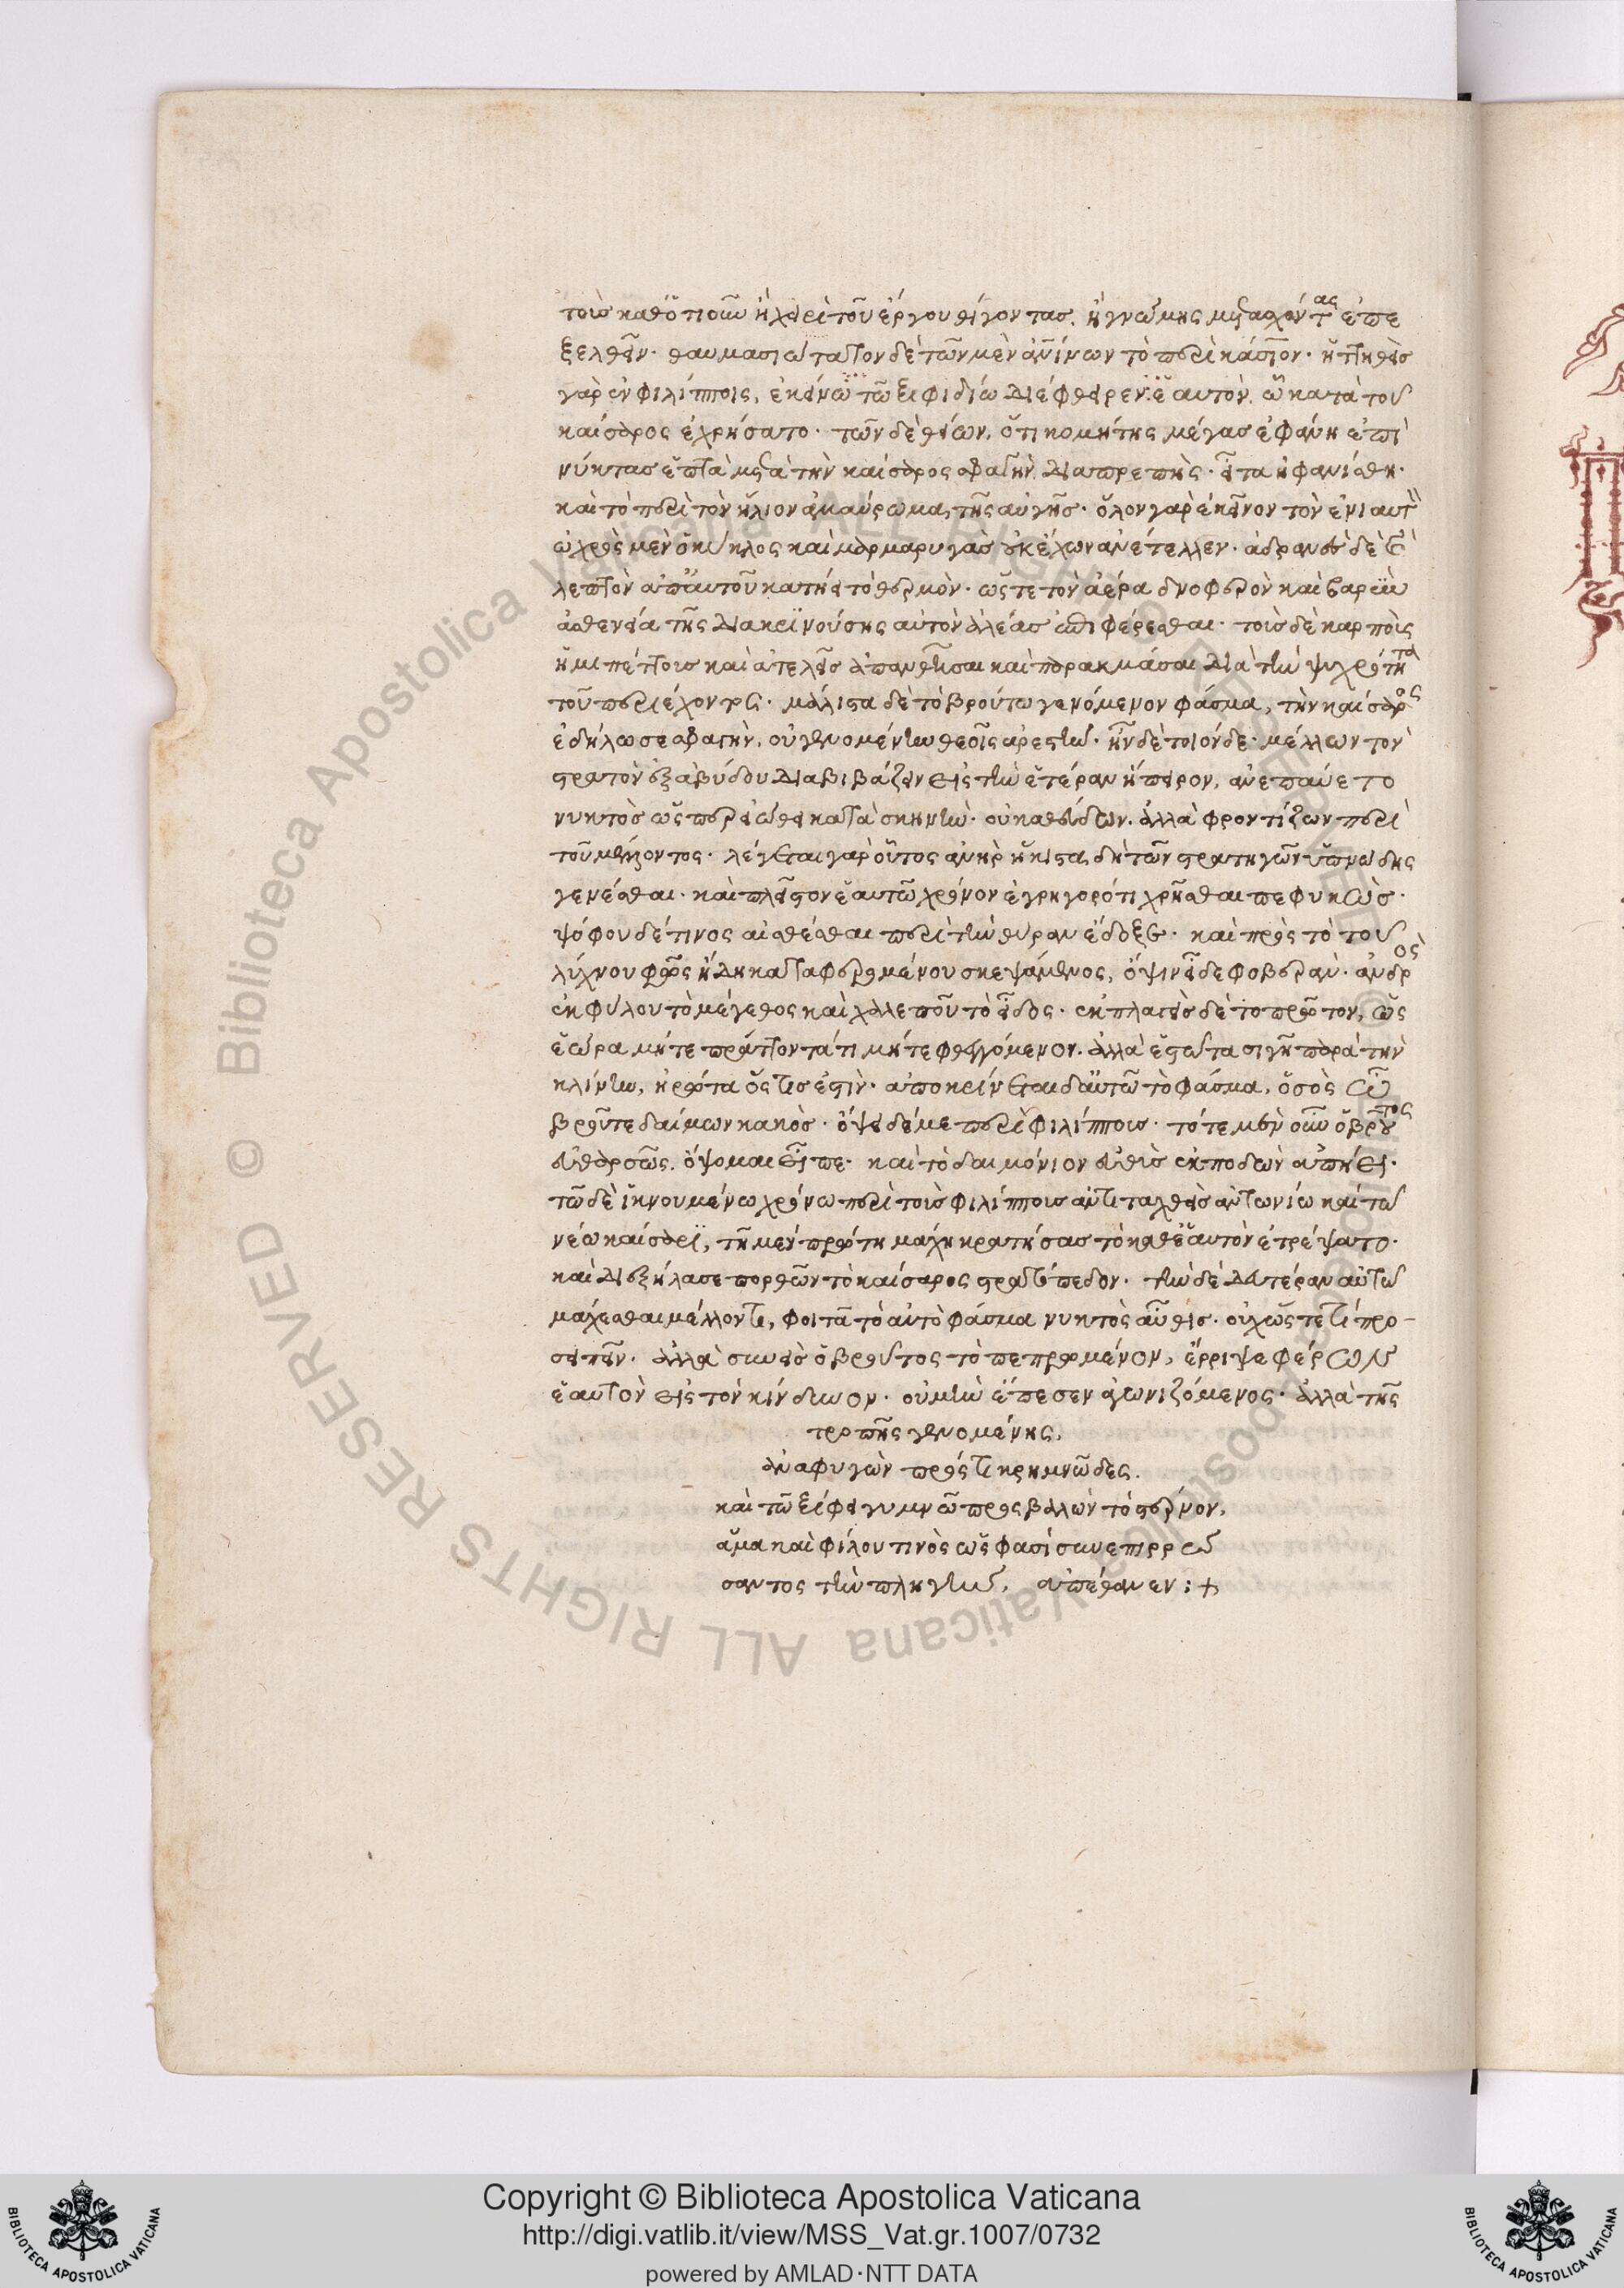 τοὺς καθ' ὁτιοῦν ἢ χειρὶ τοῦ ἔργου θίγοντας. ἢ γνώμης μετασχόντας ἐπε
ξελθεῖν· θαυμασιώτατον δὲ τῶν μὲν ἀνθρωπίνων τὸ περὶ κάσσιον· ἡττηθεὶς
γὰρ ἐν φιλίπποις, ἐκείνῳ τῷ ξιφιδίῳ διέφθειρεν ἑαυτὸν. ᾧ κατὰ τοῦ
καίσαρος ἐχρήσατο· τῶν δὲ θείων, ὅτι κομήτης μέγας ἐφάνη ἐπὶ
νύκτας ἑπτὰ μετὰ τὴν καίσαρος σφαγὴν διαπρεπής· εἶτα ἠφανίσθη·
καὶ τὸ περὶ τὸν ἥλιον ἀμαύρωμα, τῆς αὐγῆς· ὅλον γὰρ ἐκεῖνον τὸν ἐνιαυτὸν
ὠχρὸς μὲν ὁ κύκλος καὶ μαρμαρυγὰς οὐκ ἔχων ἀνέτελλεν· ἀδρανὲς δὲ καὶ
λεπτὸν ἀπ' αὐτοῦ κατῄει τὸ θερμὸν· ὥστε τὸν ἀέρα δνοφερὸν καὶ βαρὺν
ἀσθενείᾳ τῆς διακρινούσης αὐτὸν ἀλέας ἐπιφέρεσθαι· τοὺς δὲ καρποὺς
ἡμιπέπτους καὶ ἀτελεῖς ἀπανθῆσαι καὶ παρακμάσαι διὰ τὴν ψυχρότητα
τοῦ περιέχοντος· μάλιστα δὲ τὸ βρούτῳ γενόμενον φάσμα, τὴν καίσαρος
ἐδήλωσε σφαγὴν, οὐ γενομένην θεοῖς ἀρεστήν· ἦν δὲ τοιόνδε· μέλλων τὸν
στρατὸν ἐξ ἀβύδου διαβιβάζειν εἰς τὴν ἑτέραν ἤπειρον, ἀνεπαύετο
νυκτὸς ὥσπερ εἰώθει κατὰ σκηνὴν· οὐ καθεύδων. ἀλλὰ φροντίζων περὶ
τοῦ μέλλοντος· λέγεται γὰρ οὗτος ἀνὴρ ἥκιστα δὴ τῶν στρατηγῶν ὑπνώδης
γενέσθαι· καὶ πλεῖστον ἑαυτῷ χρόνον ἐγρηγορότι χρῆσθαι πεφυκὼς·
ψόφου δέ τινος αἰσθέσθαι περὶ τὴν θύραν ἔδοξε· καὶ πρὸς τὸ τοῦ
λύχνου φῶς ἤδη καταφερομένου σκεψάμενος, ὄψιν εἶδε φοβερὰν· ἀνδρὸς
ἐκφύλου τὸ μέγεθος καὶ χαλεποῦ τὸ εἶδος· ἐκπλαγεὶς δὲ το πρῶτον, ὡς
ἑώρα μήτε πράττοντά τι μήτε φθεγγόμενον. ἀλλὰ ἑστῶτα σιγῇ παρὰ τὴν
κλίνην, ἠρώτα ὅστις ἐστὶν· ἀποκρίνεται δ' αὐτῷ τὸ φάσμα, ὁ σὸς ὦ
βροῦτε δαίμων κακὸς· ὄψει δέ με περὶ φιλίππους· τότε μὲν οὖν ὁ βροῦτος
εὐθαρσῶς. ὄψομαι εἶπε· καὶ τὸ δαιμόνιον εὐθὺς ἐκποδὼν ἀπῄει·
τῷ δὲ ἱκνουμένῳ χρόνῳ περὶ τοὺς φιλίππους ἀντιταχθεὶς ἀντωνίῳ καὶ τῷ
νέῳ καίσαρϊ, τῇ μὲν πρώτῃ μάχῃ κρατήσας τὸ καθ' ἑαυτὸν ἐτρέψατο·
καὶ διεξήλασε πορθῶν τὸ καίσαρος στρατόπεδον· τὴν δὲ δευτέραν αὐτῷ
μάχεσθαι μέλλοντι, φοιτᾷ τὸ αὐτὸ φάσμα νυκτὸς αὖθις· οὐχ ὥστε τι προ-
σειπεῖν· ἀλλὰ συνεὶς ὁ βροῦτος τὸ πεπρωμένον, ἔρριψε φέρων
ἑαυτὸν εἰς τὸν κίνδυνον· οὐ μὴν ἔπεσεν ἀγωνιζόμενος· ἀλλὰ τῆς
τροπῆς γενομένης,
ἀναφυγὼν πρός τι κρημνῶδες.
καὶ τῷ ξίφει γυμνῷ προςβαλὼν τὸ στέρνον,
ἅμα καὶ φίλου τινὸς ὥς φασὶ συνεπιρρώ
σαντος τὴν πληγὴν, ἀπέθανεν :+
Copyright © Biblioteca Apostolica Vaticana
http://digi.vatlib.it/view/MSS_Vat.gr.1007/0732
powered by AMLAD·NTT DATA
Biblioteca Apostolica Vaticana ALL RIGHTS RESERVED ©
BIBLIOTECA APOSTOLICA VATICANA
BIBLIOTECA APOSTOLICA VATICANA